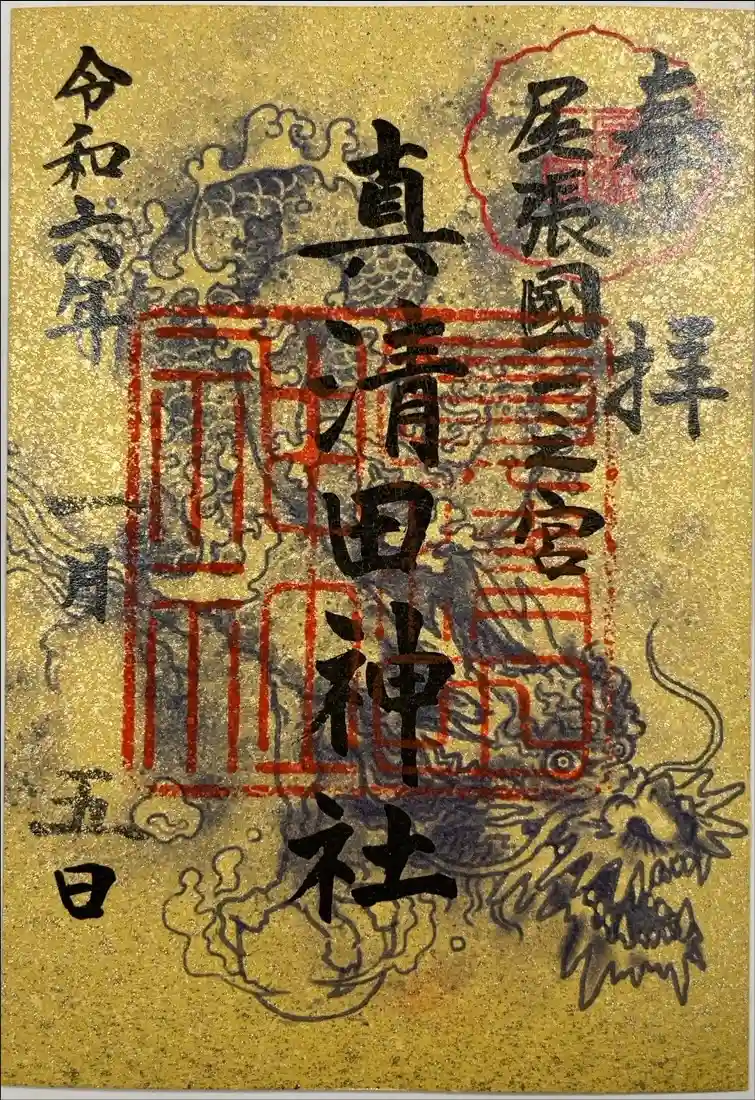 奉拝
尾張國一之宮
真清田神社
令和六年一月五日